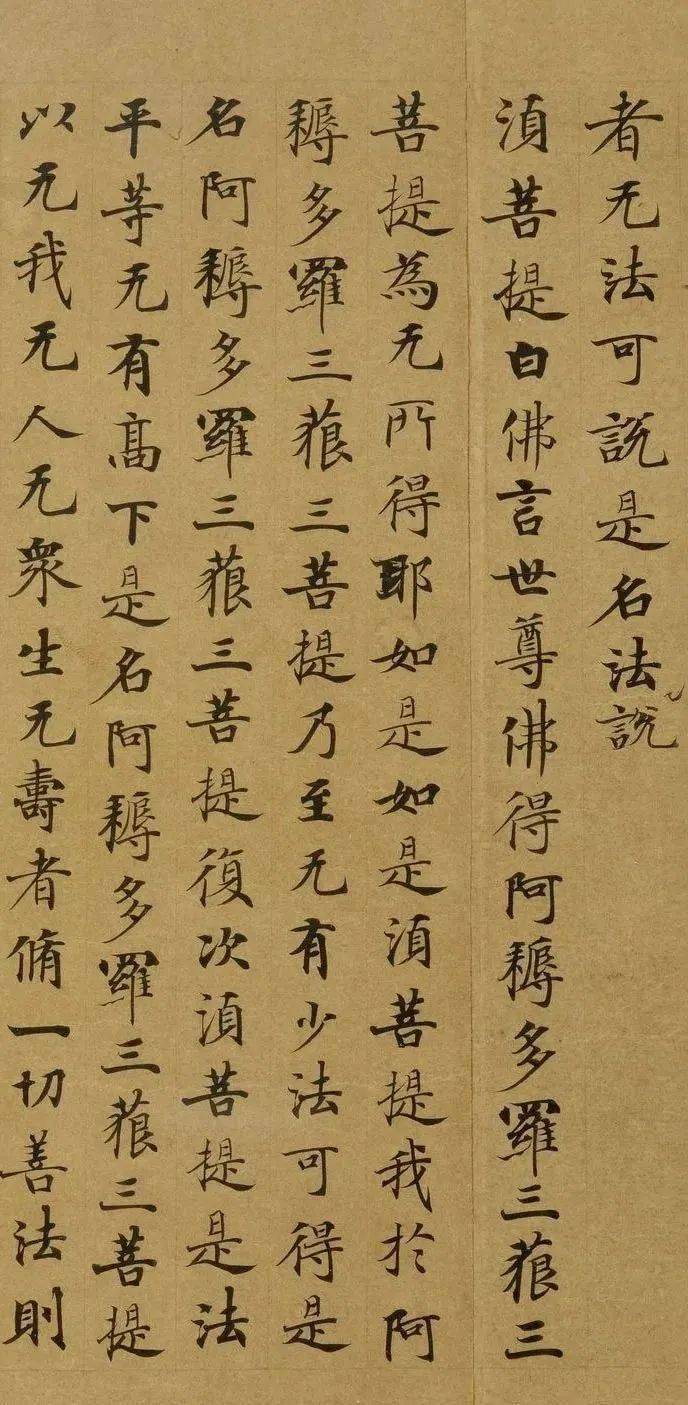 者无法可說是名法說
湏菩提白佛言世尊佛得阿耨多羅三藐三
菩提為无所得耶如是如是湏菩提我於阿
耨多羅三藐三菩提乃至无有少法可得是
名阿耨多羅三藐三菩提復次湏菩提是法
平等无有髙下是名阿耨多羅三藐三菩提
以无我无人无衆生无壽者脩一切善法則